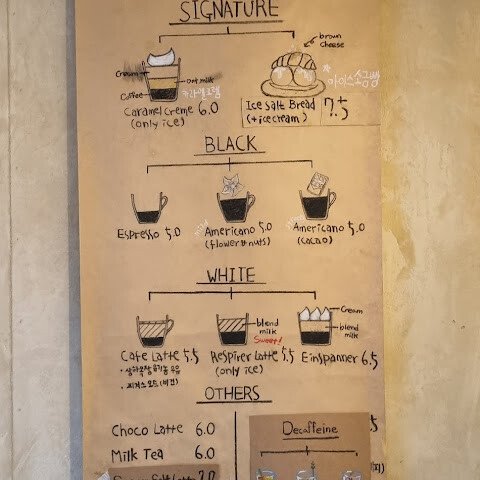 SIGNATURE
Cream
Oat milk
Coffee
카라멜크림
Caramel Creme 6.0
(only ice)
brown
cheese
아이스소금빵
Ice Salt Bread 7.5
(+ice cream)
BLACK
Espresso 5.0
Americano 5.0
(flower & nuts)
Americano 5.0
(cacao)
WHITE
Cafe Latte 5.5
blend
milk
Sweet!
Respirer Latte 5.5
(only ice)
Cream
blend
milk
Einspanner 6.5
OTHERS
Choco Latte 6.0
Milk Tea 6.0
Salt Latte 7.0
Decaffeine